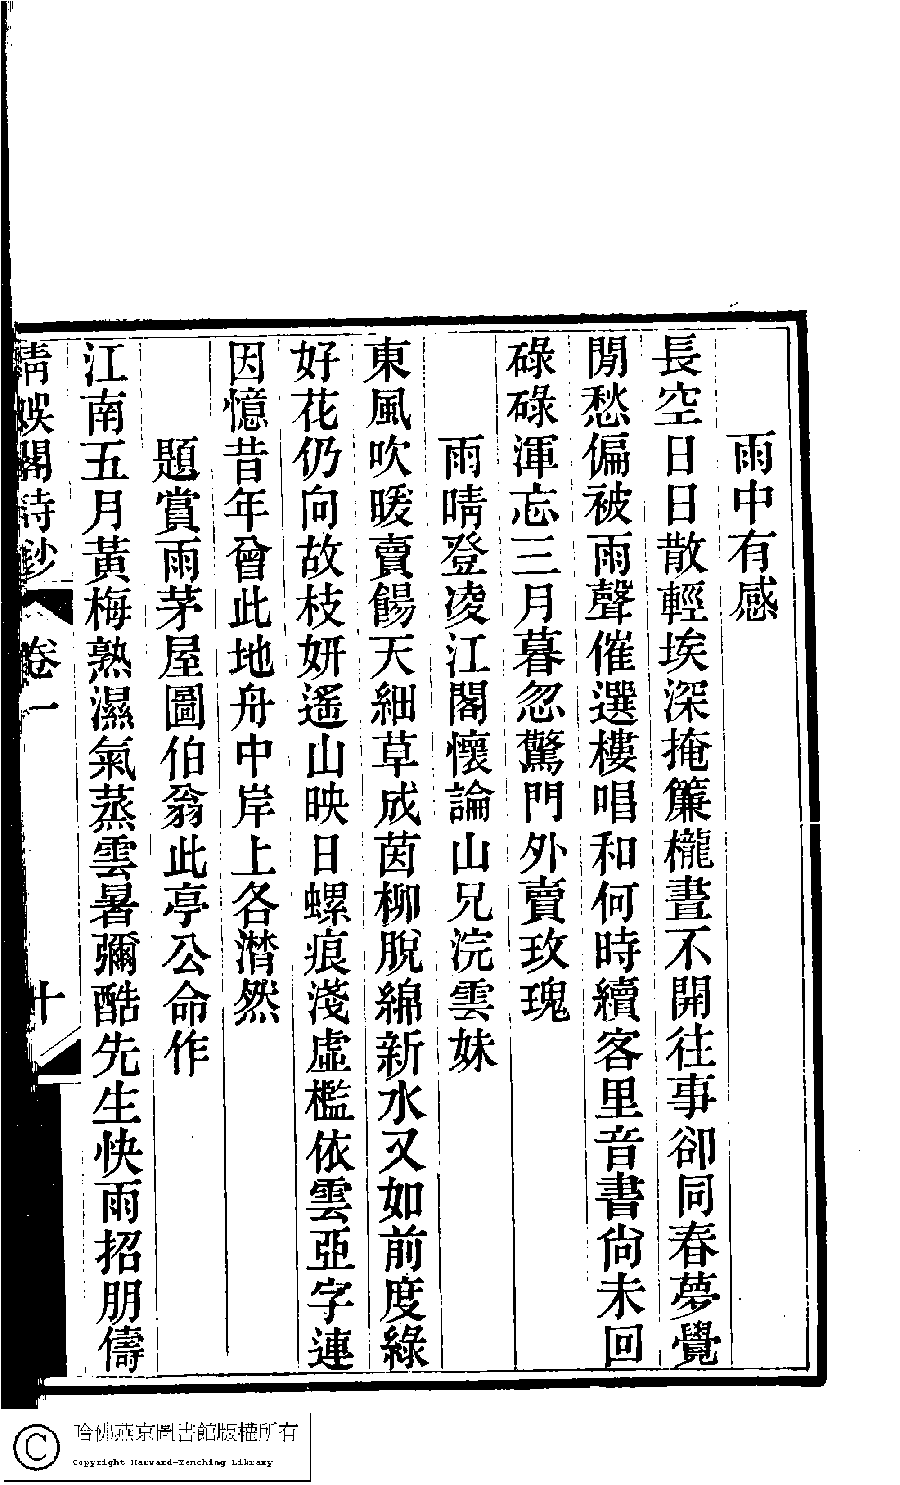 雨中有感
長空日日散輕埃深掩簾櫳晝不開往事卻同春夢覺
閒愁偏被雨聲催選樓唱和何時續客里音書尙未回
碌碌渾忘三月暮忽驚門外賣玫瑰
雨晴登凌江閣懷論山兄浣雲妹
東風吹暖賣餳天細草成茵柳脫綿新水又如前度綠
好花仍向故枝妍遙山映日螺痕淺虛檻依雲亞字連
因憶昔年曾此地舟中岸上各潸然
題賞雨茅屋圖伯翁此亭公命作
江南五月黃梅熟濕氣蒸雲暑彌酷先生快雨招朋儔
清娛閣詩鈔 卷一 十
哈佛燕京圖書館版權所有
Copyright Harvard-Yenching Library